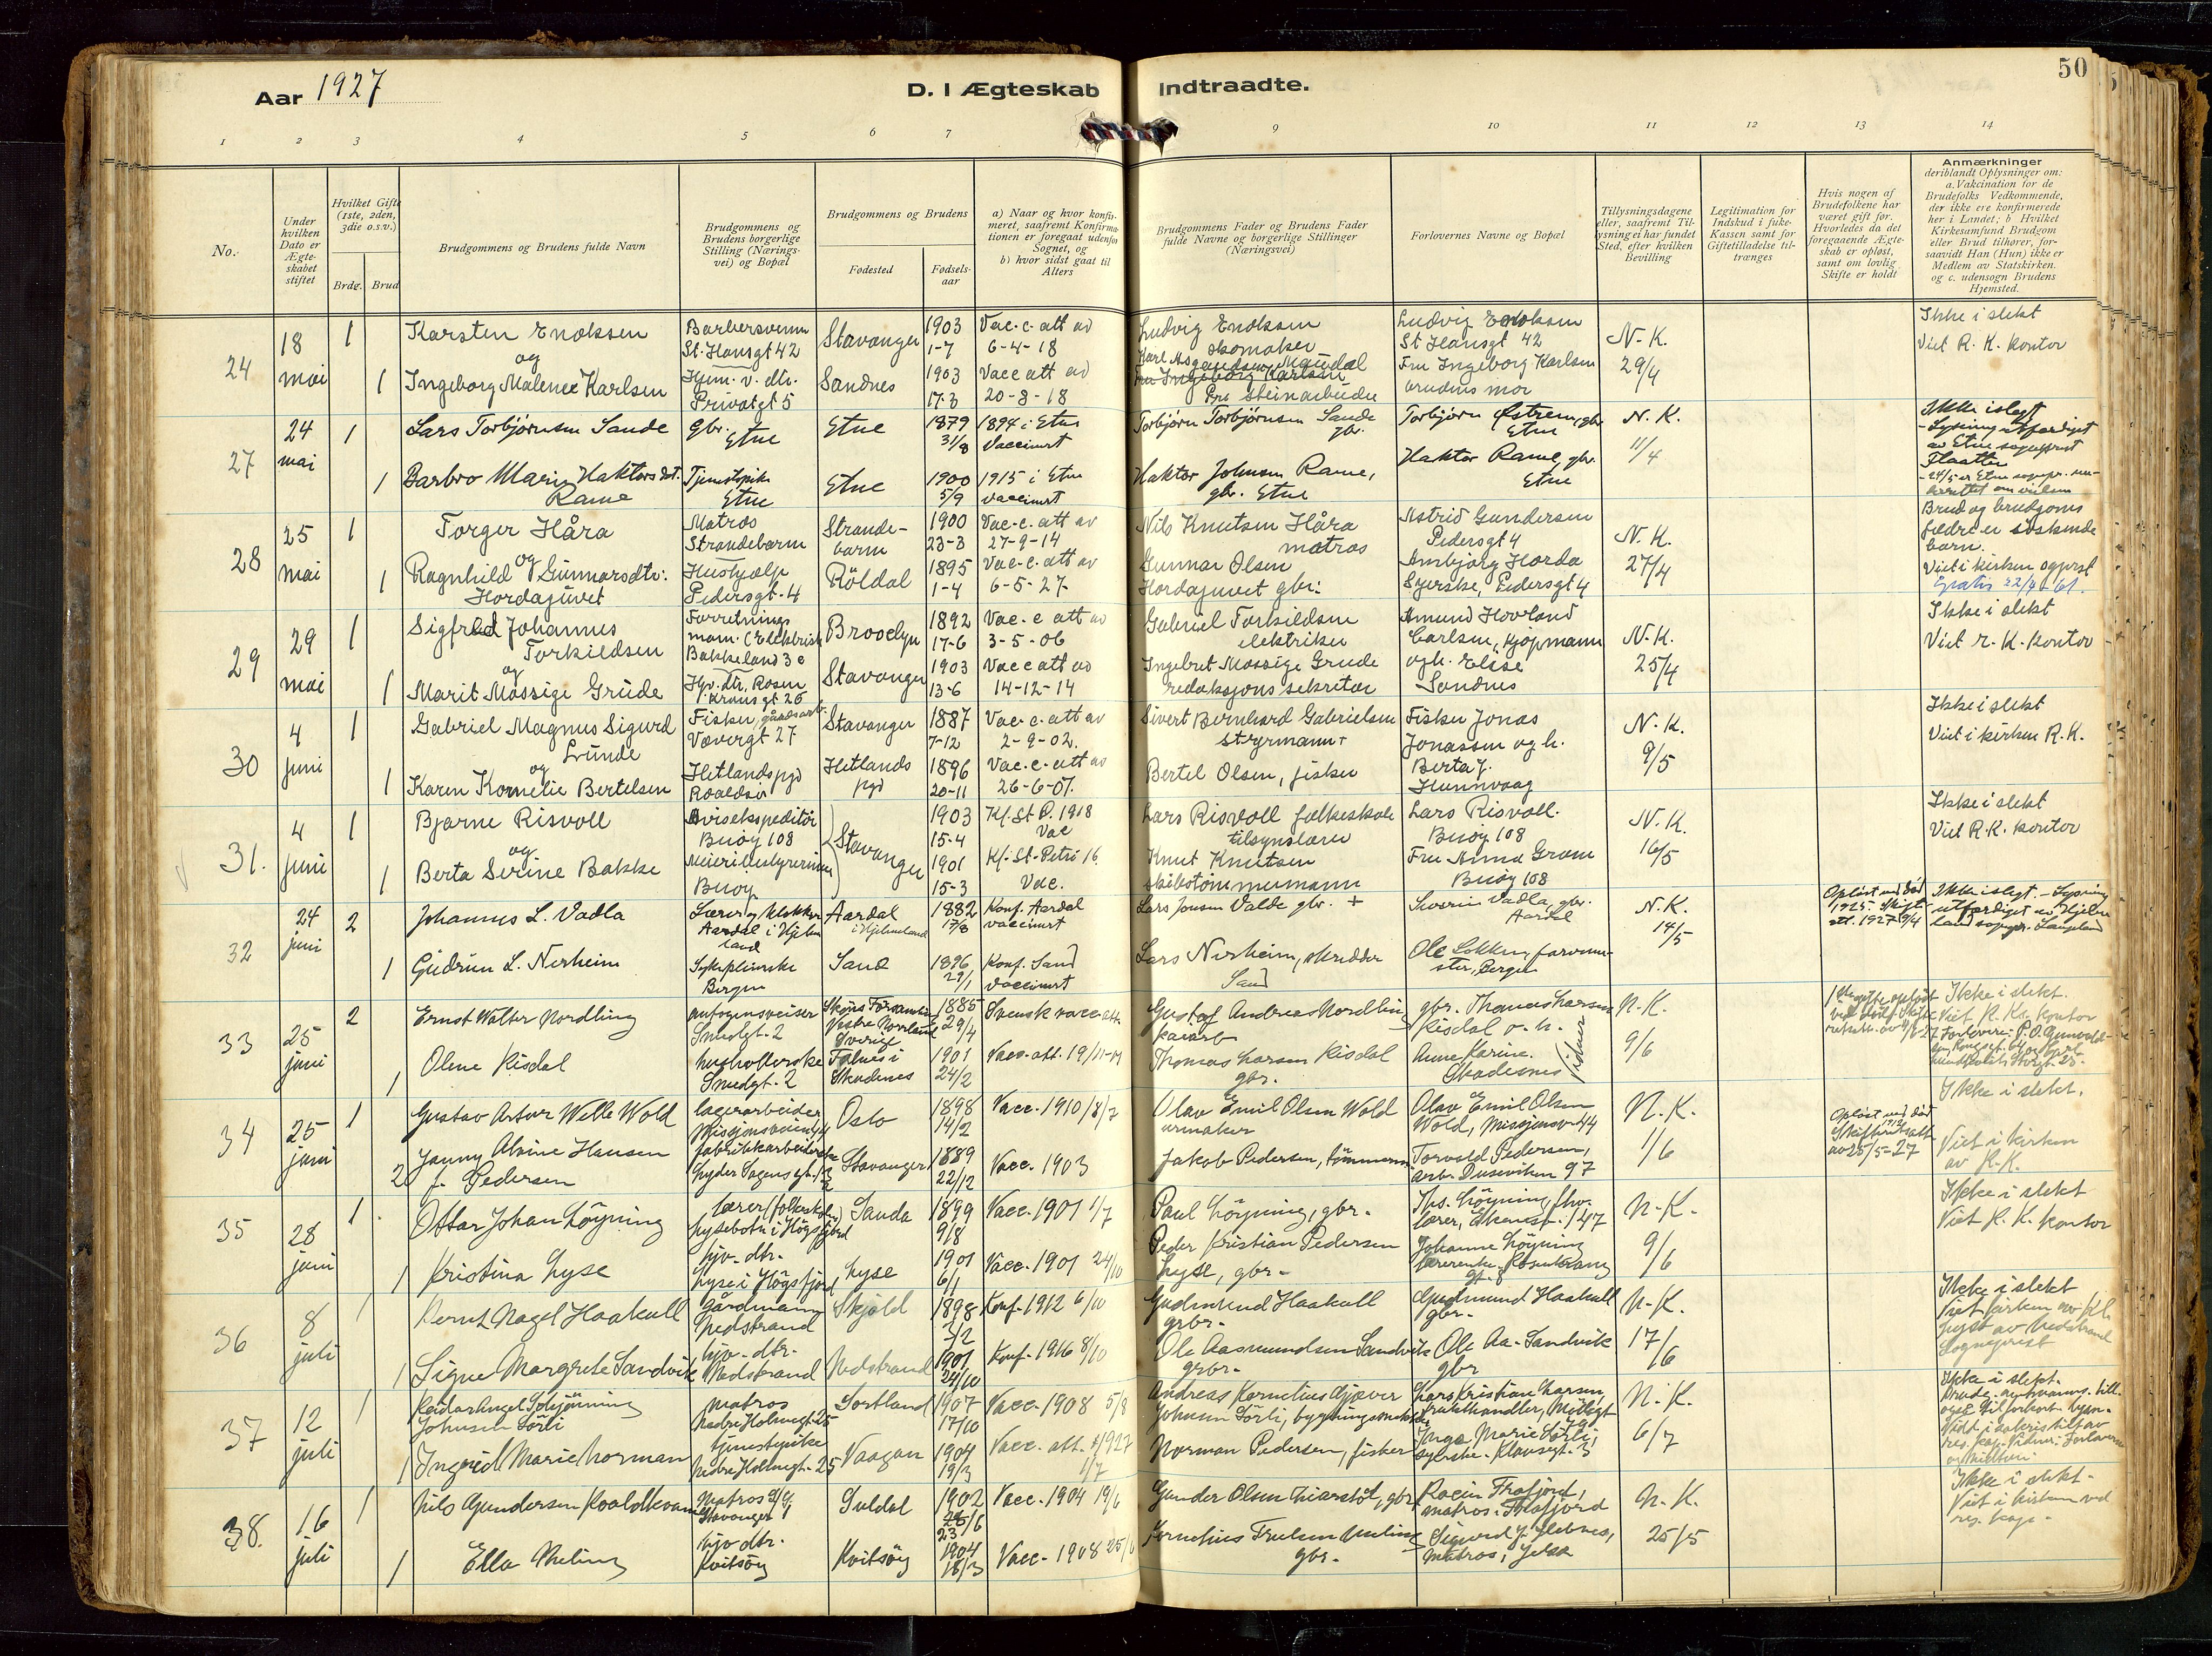 Aar 1927
D. I Ægteskab Indtraadte.
50
1 2 3 4 5 6 7 9 10 11 12 13 14
No.
Under hvilken Dato er Ægteskabet stiftet
Hvilket Gifte (1ste, 2den, 3die o.s.v.)
Brdg. Brud
Brudgommens og Brudens fulde Navn
Brudgommens og Brudens borgerlige Stilling (Næringsvei) og Bopæl
Brudgommens og Brudens
Fødested
Fødselsaar
a) Naar og hvor konfirmeret, saafremt Konfirmationen er foregaat udenfor Sognet, og
b) hvor sidst gaat til Alters
Brudgommens Fader og Brudens Fader fulde Navne og borgerlige Stillinger (Næringsvei)
Forlovernes Navne og Bopæl
Tillysningsdagene eller, saafremt Tillysning ei har fundet Sted, efter hvilken Bevilling
Legitimation for Indskud i Enkekassen samt for Giftetilladelse tiltrænges
Hvis nogen af Brudefolkene har været gift før. Hvorledes da det foregaaende Ægteskab er opløst, samt om lovlig Skifte er holdt
Anmærkninger
deriblandt Oplysninger om: a. Vakcination for de Brudefolks Vedkommende, der ikke ere konfirmerede her i Landet; b Hvilket Kirkesamfund Brudgom eller Brud tilhører, forsaavidt Han (Hun) ikke er Medlem av Statskirken. og c. udensogn Brudens Hjemsted.
24
18 mai
1
Karsten Enoksen
Barbersvenn
St. Hansgt 42
Stavanger
1903
1-7
Vac. c. att av
6-4-18
Ludvig Enoksen
skomaker
Ludvig Enoksen
St Hansgt 42
N. K.
29/4
Ikke i slekt
Viet R. K. kontor
og
1
Ingeborg Malene Karlsen
Hjem. v. dtr.
Privatgt 5
Sandnes
1903
17-3
Vacc att av
20-8-18
Karl Asgaudsen Maudal
Fru Ingeborg Karlsen
steinarbeider
Fru Ingeborg Karlsen
brudens mor
27
24 mai
1
Lars Torbjørnsen Sande
gbr.
Etne
Etne
1879
31/8
1894 i Etne
Vaccinert
Torbjørn Torbjørnsen Sande
gbr.
Torbjørn Østrem, gbr.
Etne
N. K.
11/4
Ikke i slegt
- Lysning utferdiget
av Etne sogneprest
1
Barbro Marie Haktorsdt.
Rame
Tjenestepike
Etne
Etne
1900
5/9
1915 i Etne
vaccinert
Haktor Johnsen Rame,
gbr. Etne
Haktor Rame, gbr.
Etne
28
25 mai
1
Torger Håra
Matros
Strandebarm
Strandebarm
1900
23-3
Vac. c. att av
27-9-14
Nils Knutsen Håra
matros
Astrid Gundersen
Pedersgt 4
N. K.
27/4
Brud og brudgoms
fædre er søskende
barn.
Viet i kirken
og
1
Ragnhild Gunnarsdtr.
Hordajuvet
Hushjælp
Pedersgt. 4
Röldal
1895
1-4
Vac. c. att av
6-5-27
Gunnar Olsen
Hordajuvet gbr.
Ambjørg Horda
Syerske, Pedersgt 4
29
29 mai
1
Sigfred Johannes
Torkildsen
Forretnings
mann. (Elektrisk
Bakkeland 3 e
Brooclyn
1892
17-6
Vac. c att av
3-5-06
Gabriel Torkildsen
elektriker
Amund Hovland
Carlsen, kjøpmann
N. K.
25/4
Ikke i slekt
Viet r. K. kontor
og
1
Marit Mossige Grude
Hjv. dtr. Rosen
kransgt 26
Stavanger
1903
13-6
Vacc att av
14-12-14
Ingebret Mossige Grude
redaksjonssekretær
og h. Elise
Sandnes
30
4 juni
1
Gabriel Magnus Sigurd
Lunde
Fisker
Vævergt 27
Stavanger
1887
7-12
Vac. c. att av
2-9-02.
Sivert Bernhard Gabrielsen
styrmann +
Fisker Jonas
Jonassen og h.
N. K.
9/5
Ikke i slekt
Viet i kirken R. K.
og
1
Karen Kornelie Bertelsen
Hetlands pgd
Roaldsø
Hetlands
pgd
1896
20-11
Vac. c. att av
26-6-07.
Bertel Olsen, fisker
Berta J.
Hunnvaag
31.
4 juni
1
Bjarne Risvoll
Avisekspeditör
Buøy 108
Stavanger
1903
15-4
Kf. St P. 1918
Vac
Lars Risvoll folkeskole
tilsynslærer
Lars Risvoll.
Buøy 108
N. K.
16/5
Ikke i slekt
Viet R. K. kontor
og
1
Berta Serine Bakke
Meieribestyrerinne
Buøy
1901
15-3
Kf. St. Petri 16.
Vac.
Knut Knutsen
skibstømmermann
Fru Anna Grøne
Buøy 108
32
24 juni
2
Johannes L. Vadla
Lærer og klokker
Aardal i Hjelmeland
Aardal
i Hjelmeland
1882
17/8
Konf. Aardal
vaccinert
Lars Jonsen Valde gbr. +
Sverin Vadla, gbr.
Aardal
N. K.
14/5
Opløst ved død
1925. Skifteatt. 1927 9/4
Ikke i slegt. - Lysning
utferdiget av Hjelmeland sognepr.
1
Gudrun L. Nerheim
Sykepleierske
Bergen
Sand
1896
29/1
Konf. Sand
vaccinert
Lars Nerheim, skredder
Sand
Ole Løkken, farvemester, Bergen
33
25 juni
2
Ernst Walter Nordling
autogensveiser
Smedgt. 2
Vestre Norrland
Sverige
1885
29/4
Svensk vacc. att.
Gustaf Andreas Nordling
gbr. Thomas Larsen
Risdal o. h.
N. K.
9/6
Ikke i slekt.
Viet R. K. kontor
1
Olene Risdal
husholderske
Smedgt. 2
Falnes i
Skudenes
1901
24/2
Vacc. att. 19/11-09
Thomas Larsen Risdal
gbr.
Anne Karine.
Skudesnes
34
25 juni
1
Gustav Artur Welle Wold
lagerarbeider
Misjonsveien 44
Oslo
1898
14/2
Vacc. 1910 /8/2
Olav Emil Olsen Wold
urmaker
Olav Emil Olsen
Wold, Misjonsv. 44
N. K.
1/6
Opløst ved død
Skifterettsatt
av 25/5-27
Ikke i slekt.
Viet i kirken
av R.K.
2
Janny Alvine Hansen
f. Pedersen
fabrikkarbeiderske
Lyder Sagens gt. 13
Stavanger
1889
22/12
Vacc. 1903
Jakob Pedersen, tömmerm.
Torvald Pedersen,
arb. Duseviken 97
35
28 juni
1
Ottar Johan Löyning
lærer (folkeskolen)
Lysebotn i Högsfjord
Sauda
1899
9/8
Vacc. 1901 1/7
Paul Löyning, gbr.
Ths. Löyning, fhv.
lærer,
N. K.
9/6
Ikke i slekt
Viet R. K. kontor
1
Kristina Lyse
hjv. dtr.
Lyse i Högsfjord
Lyse
1901
6/1
Vacc. 1901 24/10
Peder Kristian Pedersen
Lyse, gbr.
Johanne Löyning
lærerinne, Rosenkrantz
gt. 8
36
8 juli
1
Bernt Nagel Haakull
Gårdmann
Nedstrand
Skjold
1898
3/2
Konf. 1912 6/10
Gudmund Haakull
grbr.
Gudmund Haakull
gbr.
N. K.
17/6
Ikke i slekt
Viet i kirken av
Nedstrand
Sogneprest
1
Signe Margrete Sandvik
hjv. dtr.
Nedstrand
Nedstrand
1901
24/10
Konf. 1916 8/10
Ole Aasmundsen Sandvik
grbr.
Ole Aa. Sandvik
gbr
37
12 juli
1
Johnsen Sörli
matros
Nedre Holmegt. 25
Sortland
1907
17/10
Vacc. 1908 5/8
Andreas Kornelius
Johnsen Sörli,
Lars Kristian Larsen,
frukthandler,
N. K.
6/7
Ikke i slekt.
1
Ingvild Marie Norman
tjenestepike
Nedre Holmegt. 25
Vaagan
1904
19/3
Vacc. att. 1927
1/7
Norman Pedersen, fisker
Inga Marie Sörli,
syerske. Klavesgt. 3
38.
16 juli
1
Nils Gundersen Roaldkvam
Matros
Stavanger
Suldal
1902
23/6
Vacc. 1904 19/6
Gunder Olsen
gbr
Trafjord,
matros.
N. K.
25/5
Ikke i slekt.
Viet i kirken ved
res. kap.
1
Ella Meling
hjv dtr.
Kvitsöy
Kvitsöy
1904
18/3
Vacc. 1908 25/6
Kornelius Trulsen Meling
gbr.
Sigurd J.
matros, Jelsa